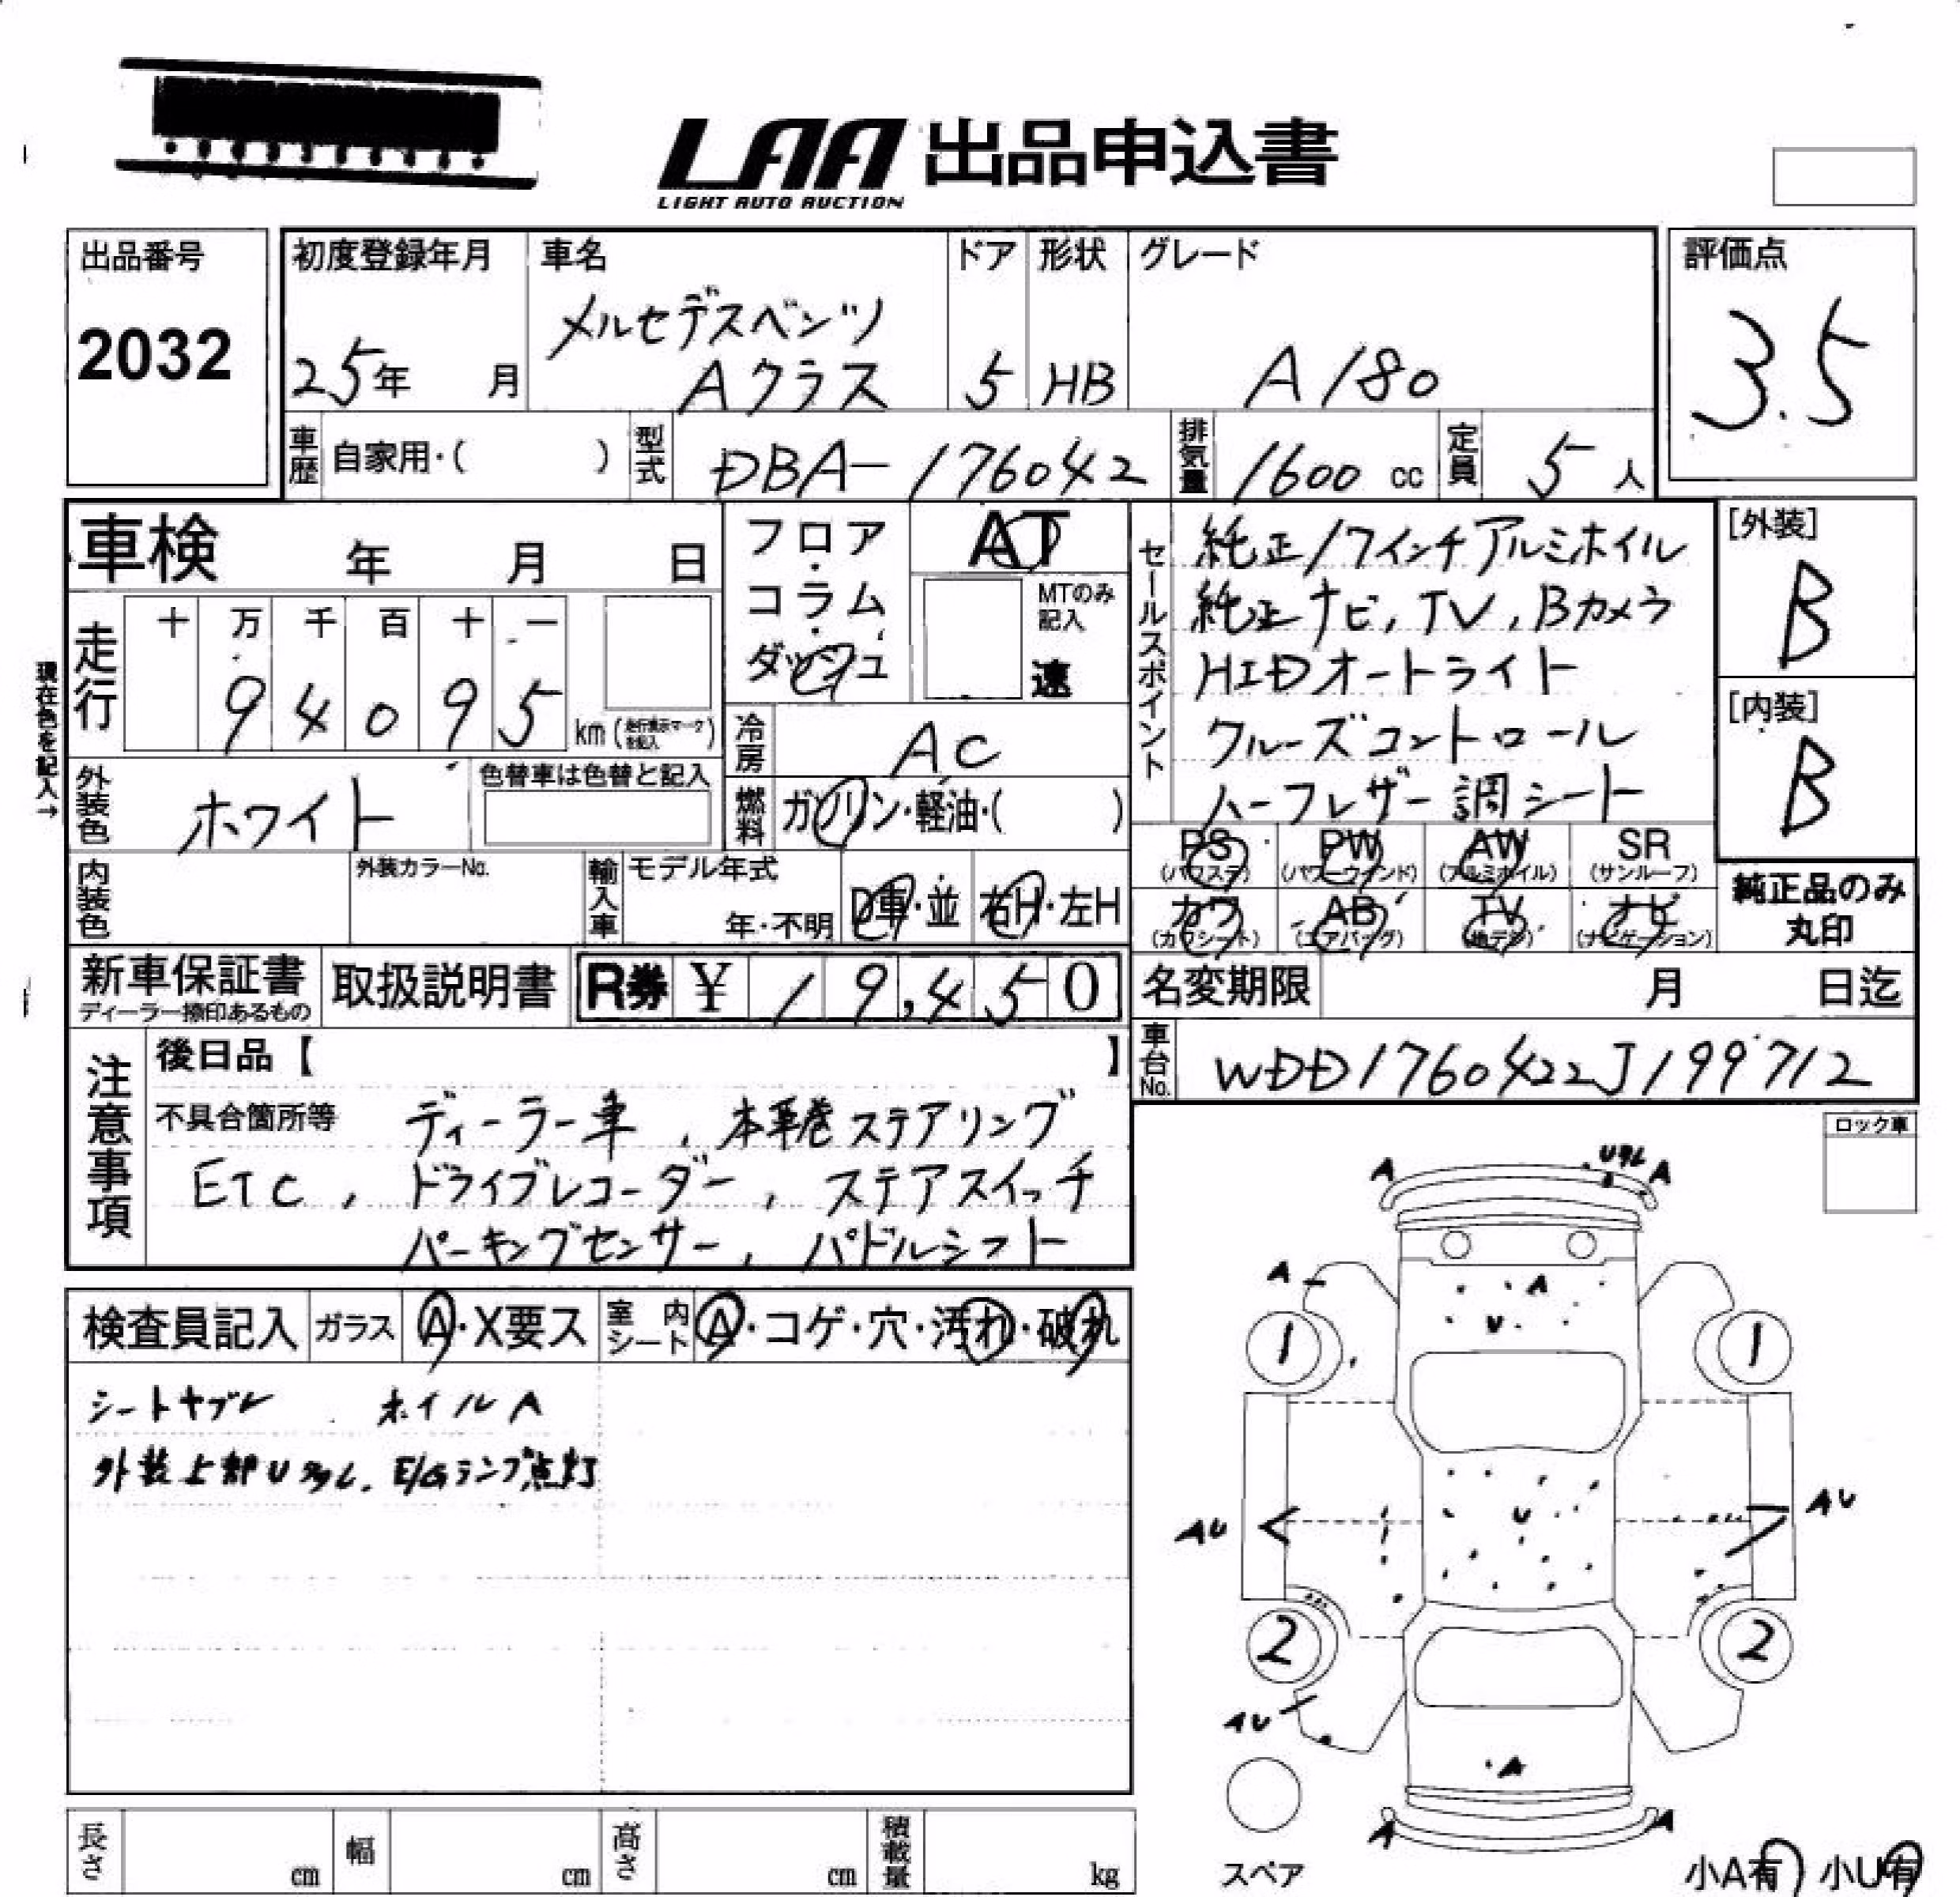 LAA 出品申込書
LIGHT AUTO AUCTION
出品番号
2032
初度登録年月
25年 月
車名
メルセデスベンツ
Aクラス
ドア
5
形状
HB
グレード
A180
評価点
3.5
車歴 自家用・( )
型式 DBA-176042
排気量 1600 cc
定員 5 人
車検 年 月 日
フロア・コラム・ダッシュ
AT
MTのみ記入
速
セールスポイント
純正17インチアルミホイル
純正ナビ, TV, Bカメラ
HIDオートライト
クルーズコントロール
ハーフレザー調シート
[外装]
B
[内装]
B
現在色を記入→
走行
十 万 千 百 十 一
9 4 0 9 5 km
(走行表示マークを記入)
冷房 AC
外装色 ホワイト
色替車は色替と記入
燃料 ガソリン・軽油・( )
内装色
外装カラーNo.
輸入車
モデル年式
年・不明
D車・並
右H・左H
PS (パワステ)
PW (パワーウインド)
AW (アルミホイル)
SR (サンルーフ)
カワ (カワシート)
AB (エアバッグ)
TV (地デジ)
ナビ (ナビゲーション)
純正品のみ
丸印
新車保証書
ディーラー捺印あるもの
取扱説明書
R券 ¥ 19,450
名変期限 月 日迄
車台No. WDD1760422J199712
注意事項
後日品【 】
不具合箇所等 ディーラー車, 本革巻ステアリング
ETC, ドライブレコーダー, ステアスイッチ
パーキングセンサー, パドルシフト
ロック車
検査員記入
ガラス A・X要ス
室内シート A・コゲ・穴・汚れ・破れ
シートヤブレ ホイルA
外装上部U多し. E/Gランプ点灯
A U多し A
A A
U
1 1
AU U AU
2 2
AU
A
A A
スペア
小A有 小U有
長さ cm
幅 cm
高さ cm
積載量 kg